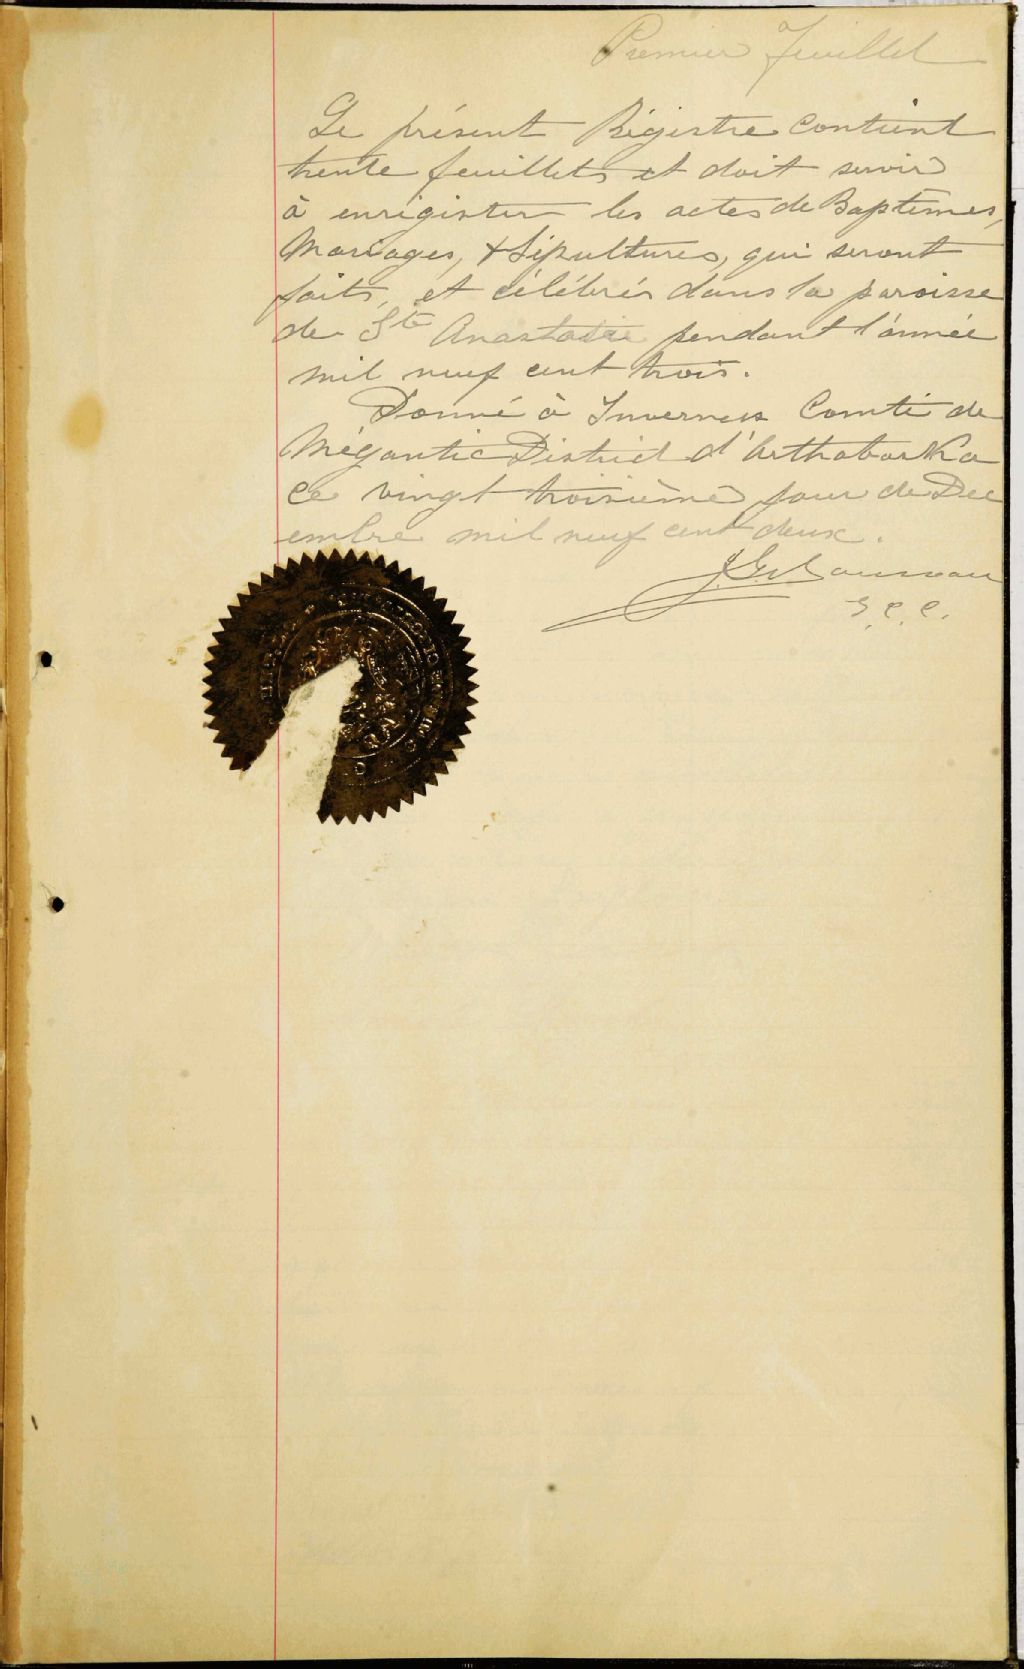 Premier feuillet
Le présent Régistre contient
trente feuillets et doit servir
à enrégistrer les actes de Baptêmes,
Mariages, & Sépultures, qui seront
faits, et célébrés dans la paroisse
de Ste Anastasie pendant l'année
mil neuf cent trois.
Donné à Inverness Comté de
Mégantic District d'Arthabaska
ce vingt troisième jour de Dec
embre mil neuf cent deux.